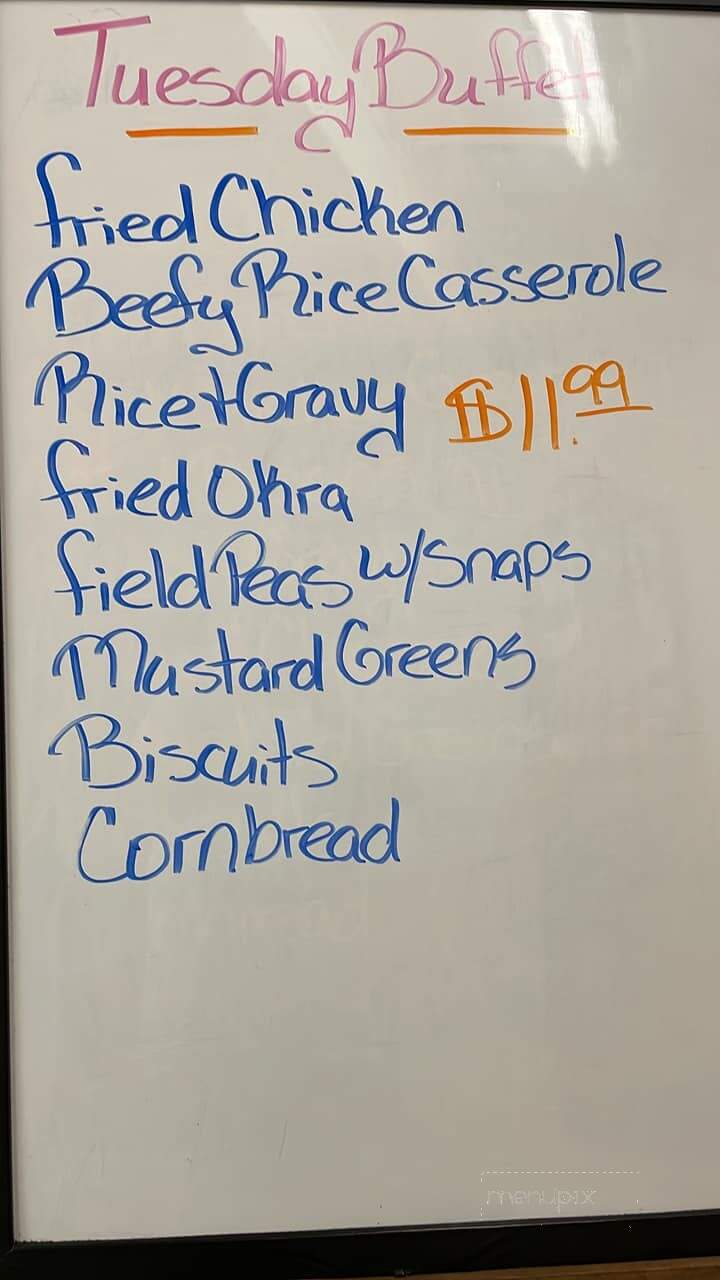 Tuesday Buffet
Fried Chicken
Beefy Rice Casserole
Rice + Gravy $11.99
Fried Okra
Field Peas w/Snaps
Mustard Greens
Biscuits
Cornbread
menupix